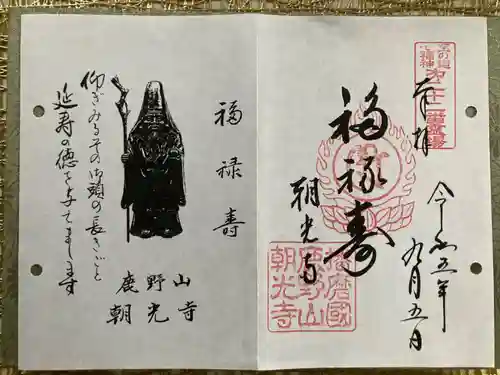 奉拝
福禄寿
朝光寺
令和五年
九月五日
播磨國
鹿野山
朝光寺
福禄寿
仰ぎみるその御頭の長きごと
延寿の徳を与てまします
鹿野山
朝光寺